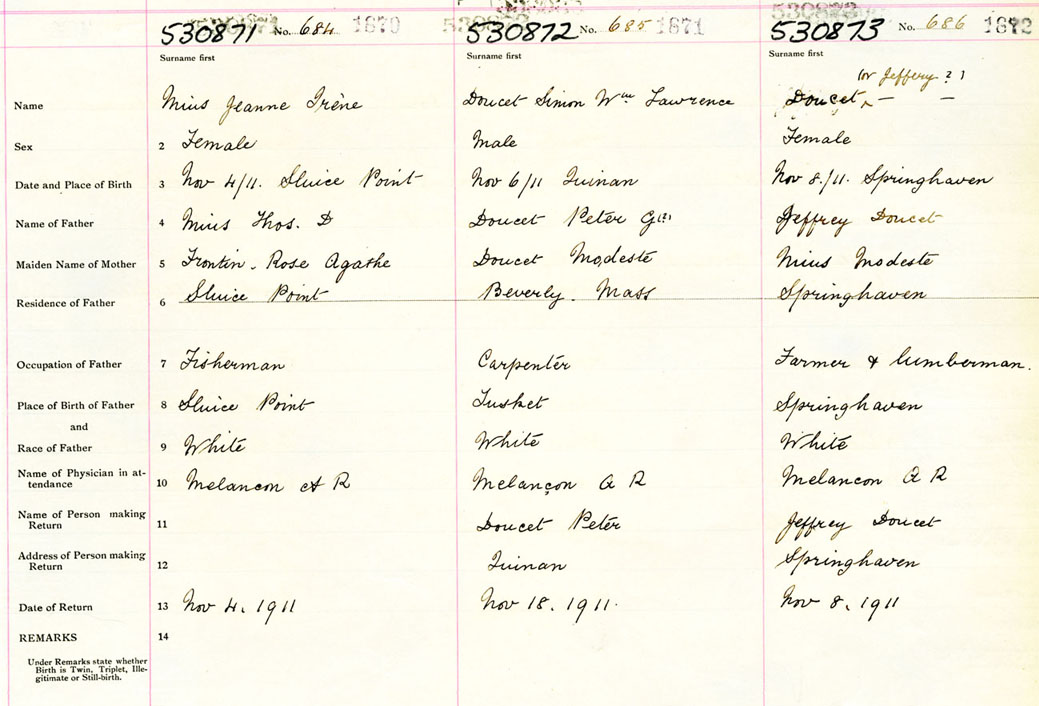 530871 No. 684 1870 530872 No. 685 1871 530873 No. 686 1872
Surname first Surname first Surname first
(or Jeffery ?)
Name Mius Jeanne Irène Doucet Simon Wm Lawrence Doucet ^ — —
Sex 2 Female Male Female
Date and Place of Birth 3 Nov 4/11. Sluice Point Nov 6/11 Quinan Nov 8./11. Springhaven
Name of Father 4 Mius Thos. D Doucet Peter Jeffrey Doucet
Maiden Name of Mother 5 Frontin. Rose Agathe Doucet Modeste Mius Modeste
Residence of Father 6 Sluice Point Beverly. Mass Springhaven
Occupation of Father 7 Fisherman Carpenter Farmer & lumberman.
Place of Birth of Father 8 Sluice Point Tusket Springhaven
and
Race of Father 9 White White White
Name of Physician in at-
tendance 10 Melancon A R Melançon A R Melancon A R
Name of Person making
Return 11 Doucet Peter Jeffrey Doucet
Address of Person making
Return 12 Quinan Springhaven
Date of Return 13 Nov 4. 1911 Nov 18. 1911. Nov 8. 1911
REMARKS 14
Under Remarks state whether
Birth is Twin, Triplet, Ille-
gitimate or Still-birth.